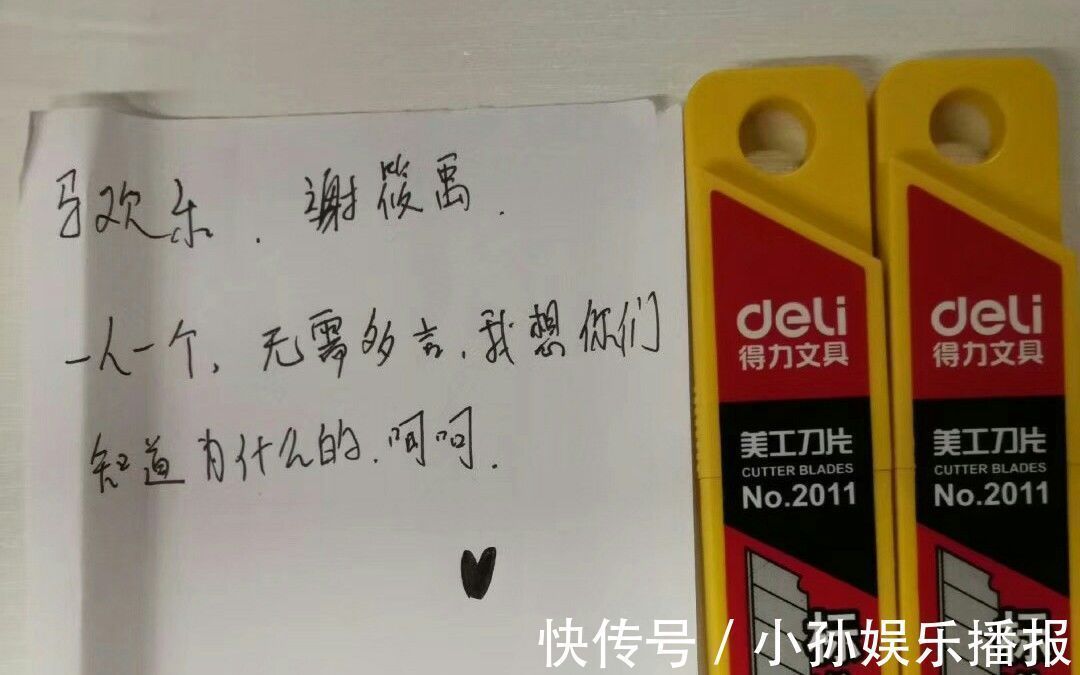 马欢乐. 谢筱禹.
一人一个,无需多言,我想你们
知道为什么的.呵呵.
deli
得力文具
美工刀片
CUTTER BLADES
No.2011
标
deli
得力文具
美工刀片
CUTTER BLADES
No.2011
标
快传号 / 小孙娱乐播报